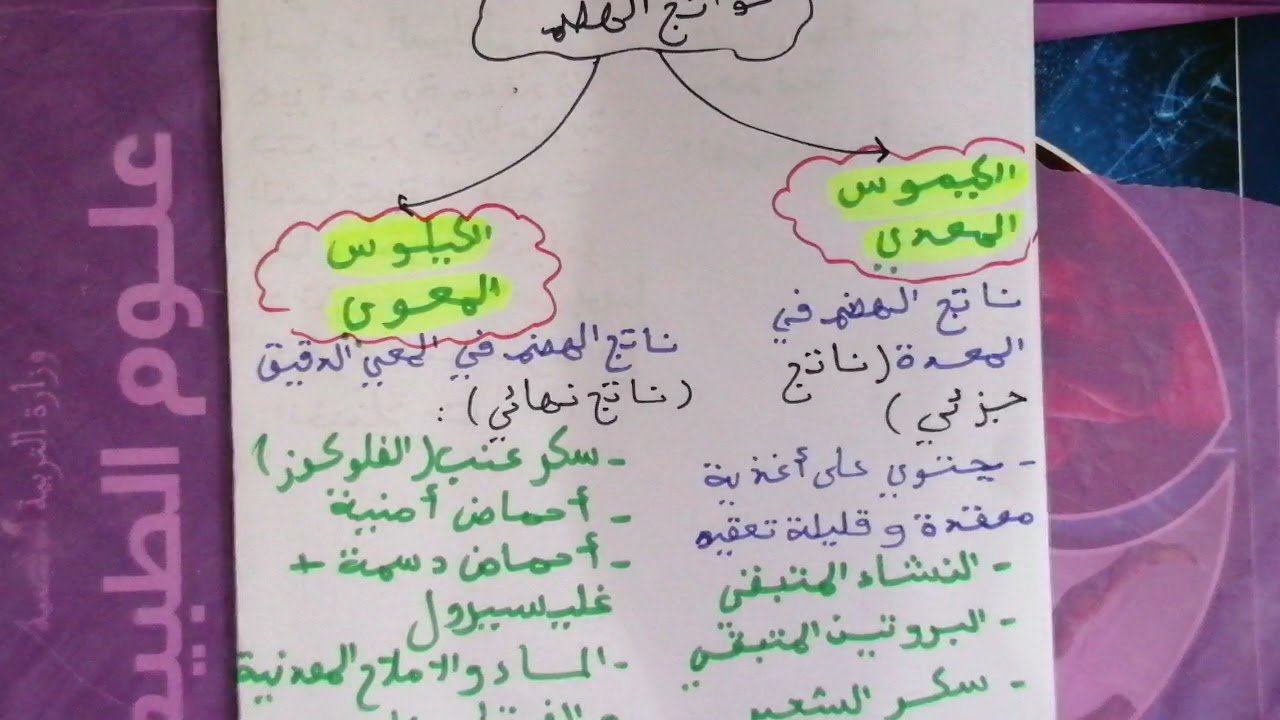 نواتج الهضم
الكيموس
المعدي
ناتج الهضم في
المعدة (ناتج
جزئي)
- يحتوي على أغذية
معقدة و قليلة تعقيد
- النشاء المتبقي
- البروتين المتبقي
- سكر الشعير
الكيلوس
المعوي
ناتج الهضم في المعي الدقيق
(ناتج نهائي) :
- سكر عنب (الغلوكوز)
- أحماض أمنية
- أحماض دسمة +
غليسيرول
- الماء والاملاح المعدنية
علوم الطبيعة
وزارة التربية